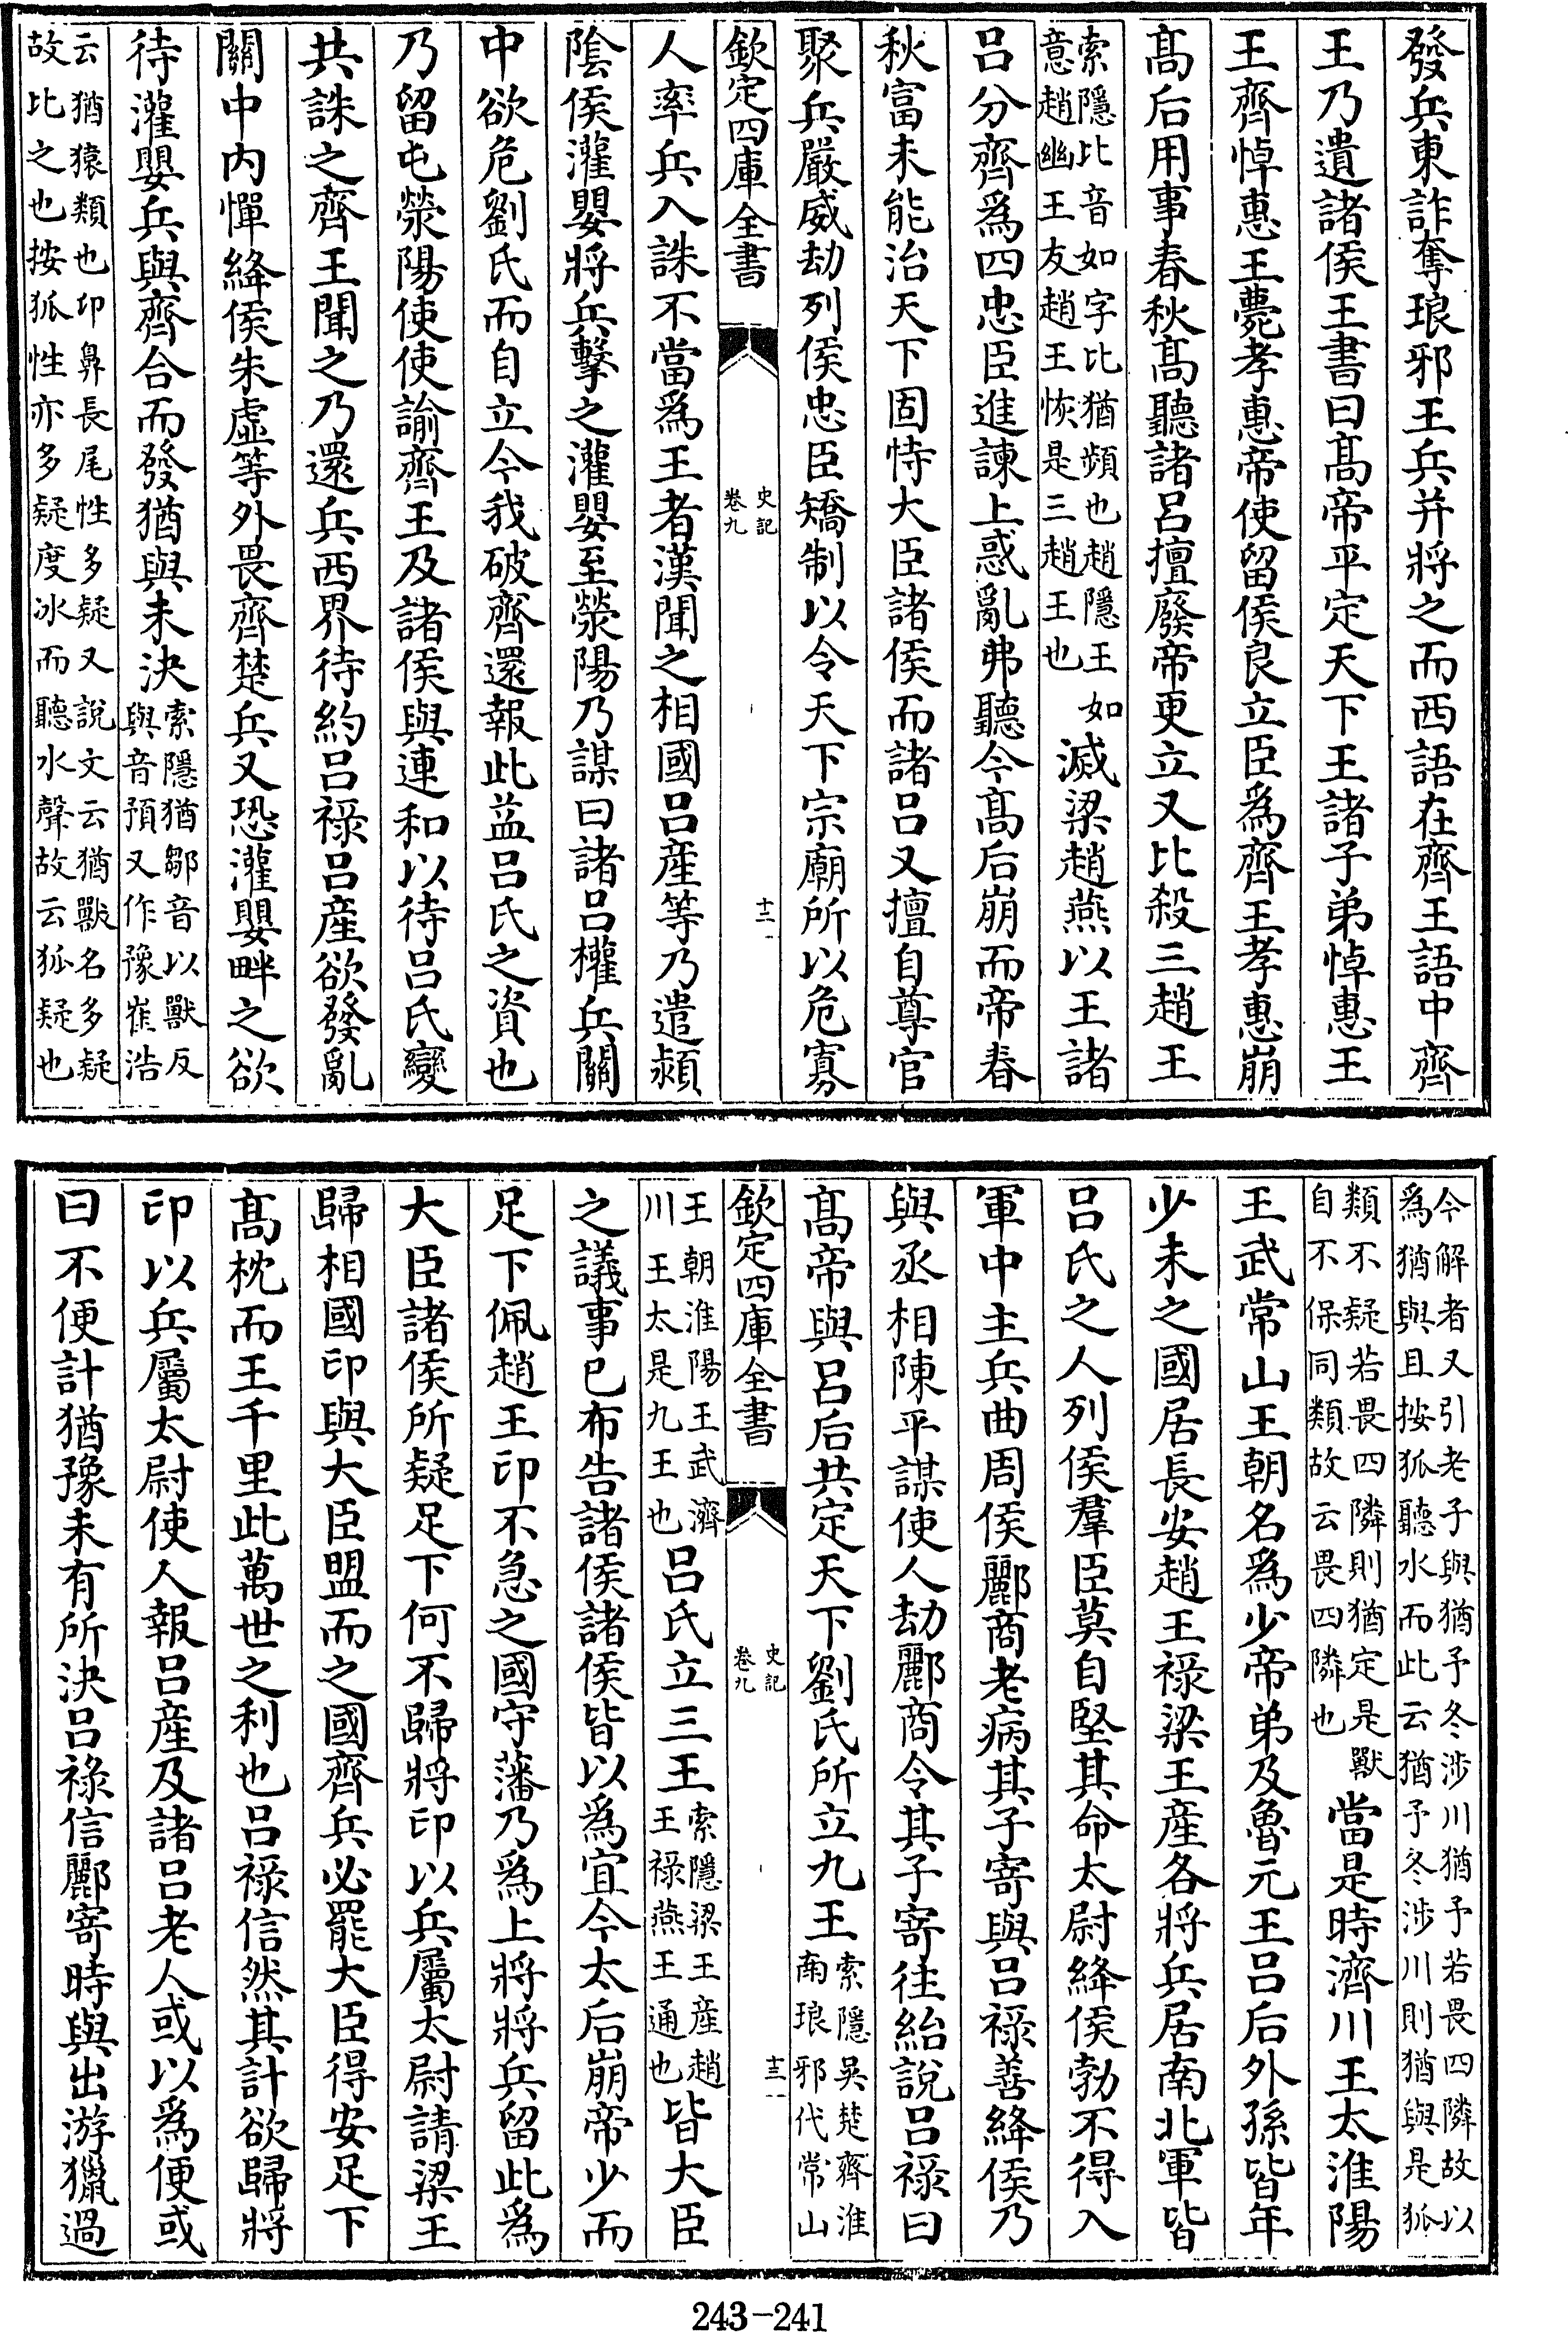 發兵東詐奪琅邪王兵并將之而西語在齊王語中齊
王乃遺諸侯王書曰髙帝平定天下王諸子弟悼惠王
王齊悼惠王薨孝惠帝使留侯良立臣爲齊王孝惠崩
髙后用事春秋髙聽諸呂擅廢帝更立又比殺三趙王
索隱比音如字比猶頻也趙隱王如
意趙幽王友趙王恢是三趙王也
滅梁趙燕以王諸
呂分齊爲四忠臣進諫上惑亂弗聽今髙后崩而帝春
秋富未能治天下固恃大臣諸侯而諸呂又擅自尊官
聚兵嚴威劫列侯忠臣矯制以令天下宗廟所以危寡
欽定四庫全書
史記
卷九
十二
人率兵入誅不當爲王者漢聞之相國呂産等乃遣潁
陰侯灌嬰將兵擊之灌嬰至滎陽乃謀曰諸呂權兵關
中欲危劉氏而自立今我破齊還報此益呂氏之資也
乃留屯滎陽使使諭齊王及諸侯與連和以待呂氏變
共誅之齊王聞之乃還兵西界待約呂祿呂産欲發亂
關中内憚絳侯朱虚等外畏齊楚兵又恐灌嬰畔之欲
待灌嬰兵與齊合而發猶與未決
索隱猶鄒音以獸反
與音預又作豫崔浩
云猶猿類也卬鼻長尾性多疑又說文云猶獸名多疑
故比之也按狐性亦多疑度冰而聽水聲故云狐疑也
今解者又引老子與猶予冬渉川猶予若畏四隣故以
爲猶與且按狐聽水而此云猶予冬渉川則猶與是狐
類不疑若畏四隣則猶定是獸
自不保同類故云畏四隣也
當是時濟川王太淮陽
王武常山王朝名爲少帝弟及魯元王呂后外孫皆年
少未之國居長安趙王祿梁王産各將兵居南北軍皆
呂氏之人列侯羣臣莫自堅其命太尉絳侯勃不得入
軍中主兵曲周侯酈商老病其子寄與呂祿善絳侯乃
與丞相陳平謀使人劫酈商令其子寄往紿說呂祿曰
髙帝與呂后共定天下劉氏所立九王
索隱吳楚齊淮
南琅邪代常山
欽定四庫全書
史記
卷九
十三
王朝淮陽王武濟
川王太是九王也
呂氏立三王
索隱梁王産趙
王祿燕王通也
皆大臣
之議事已布告諸侯諸侯皆以爲宜今太后崩帝少而
足下佩趙王印不急之國守藩乃爲上將將兵留此爲
大臣諸侯所疑足下何不歸將印以兵屬太尉請梁王
歸相國印與大臣盟而之國齊兵必罷大臣得安足下
髙枕而王千里此萬世之利也呂祿信然其計欲歸將
印以兵屬太尉使人報呂産及諸呂老人或以爲便或
曰不便計猶豫未有所決呂祿信酈寄時與出游獵過
243-241